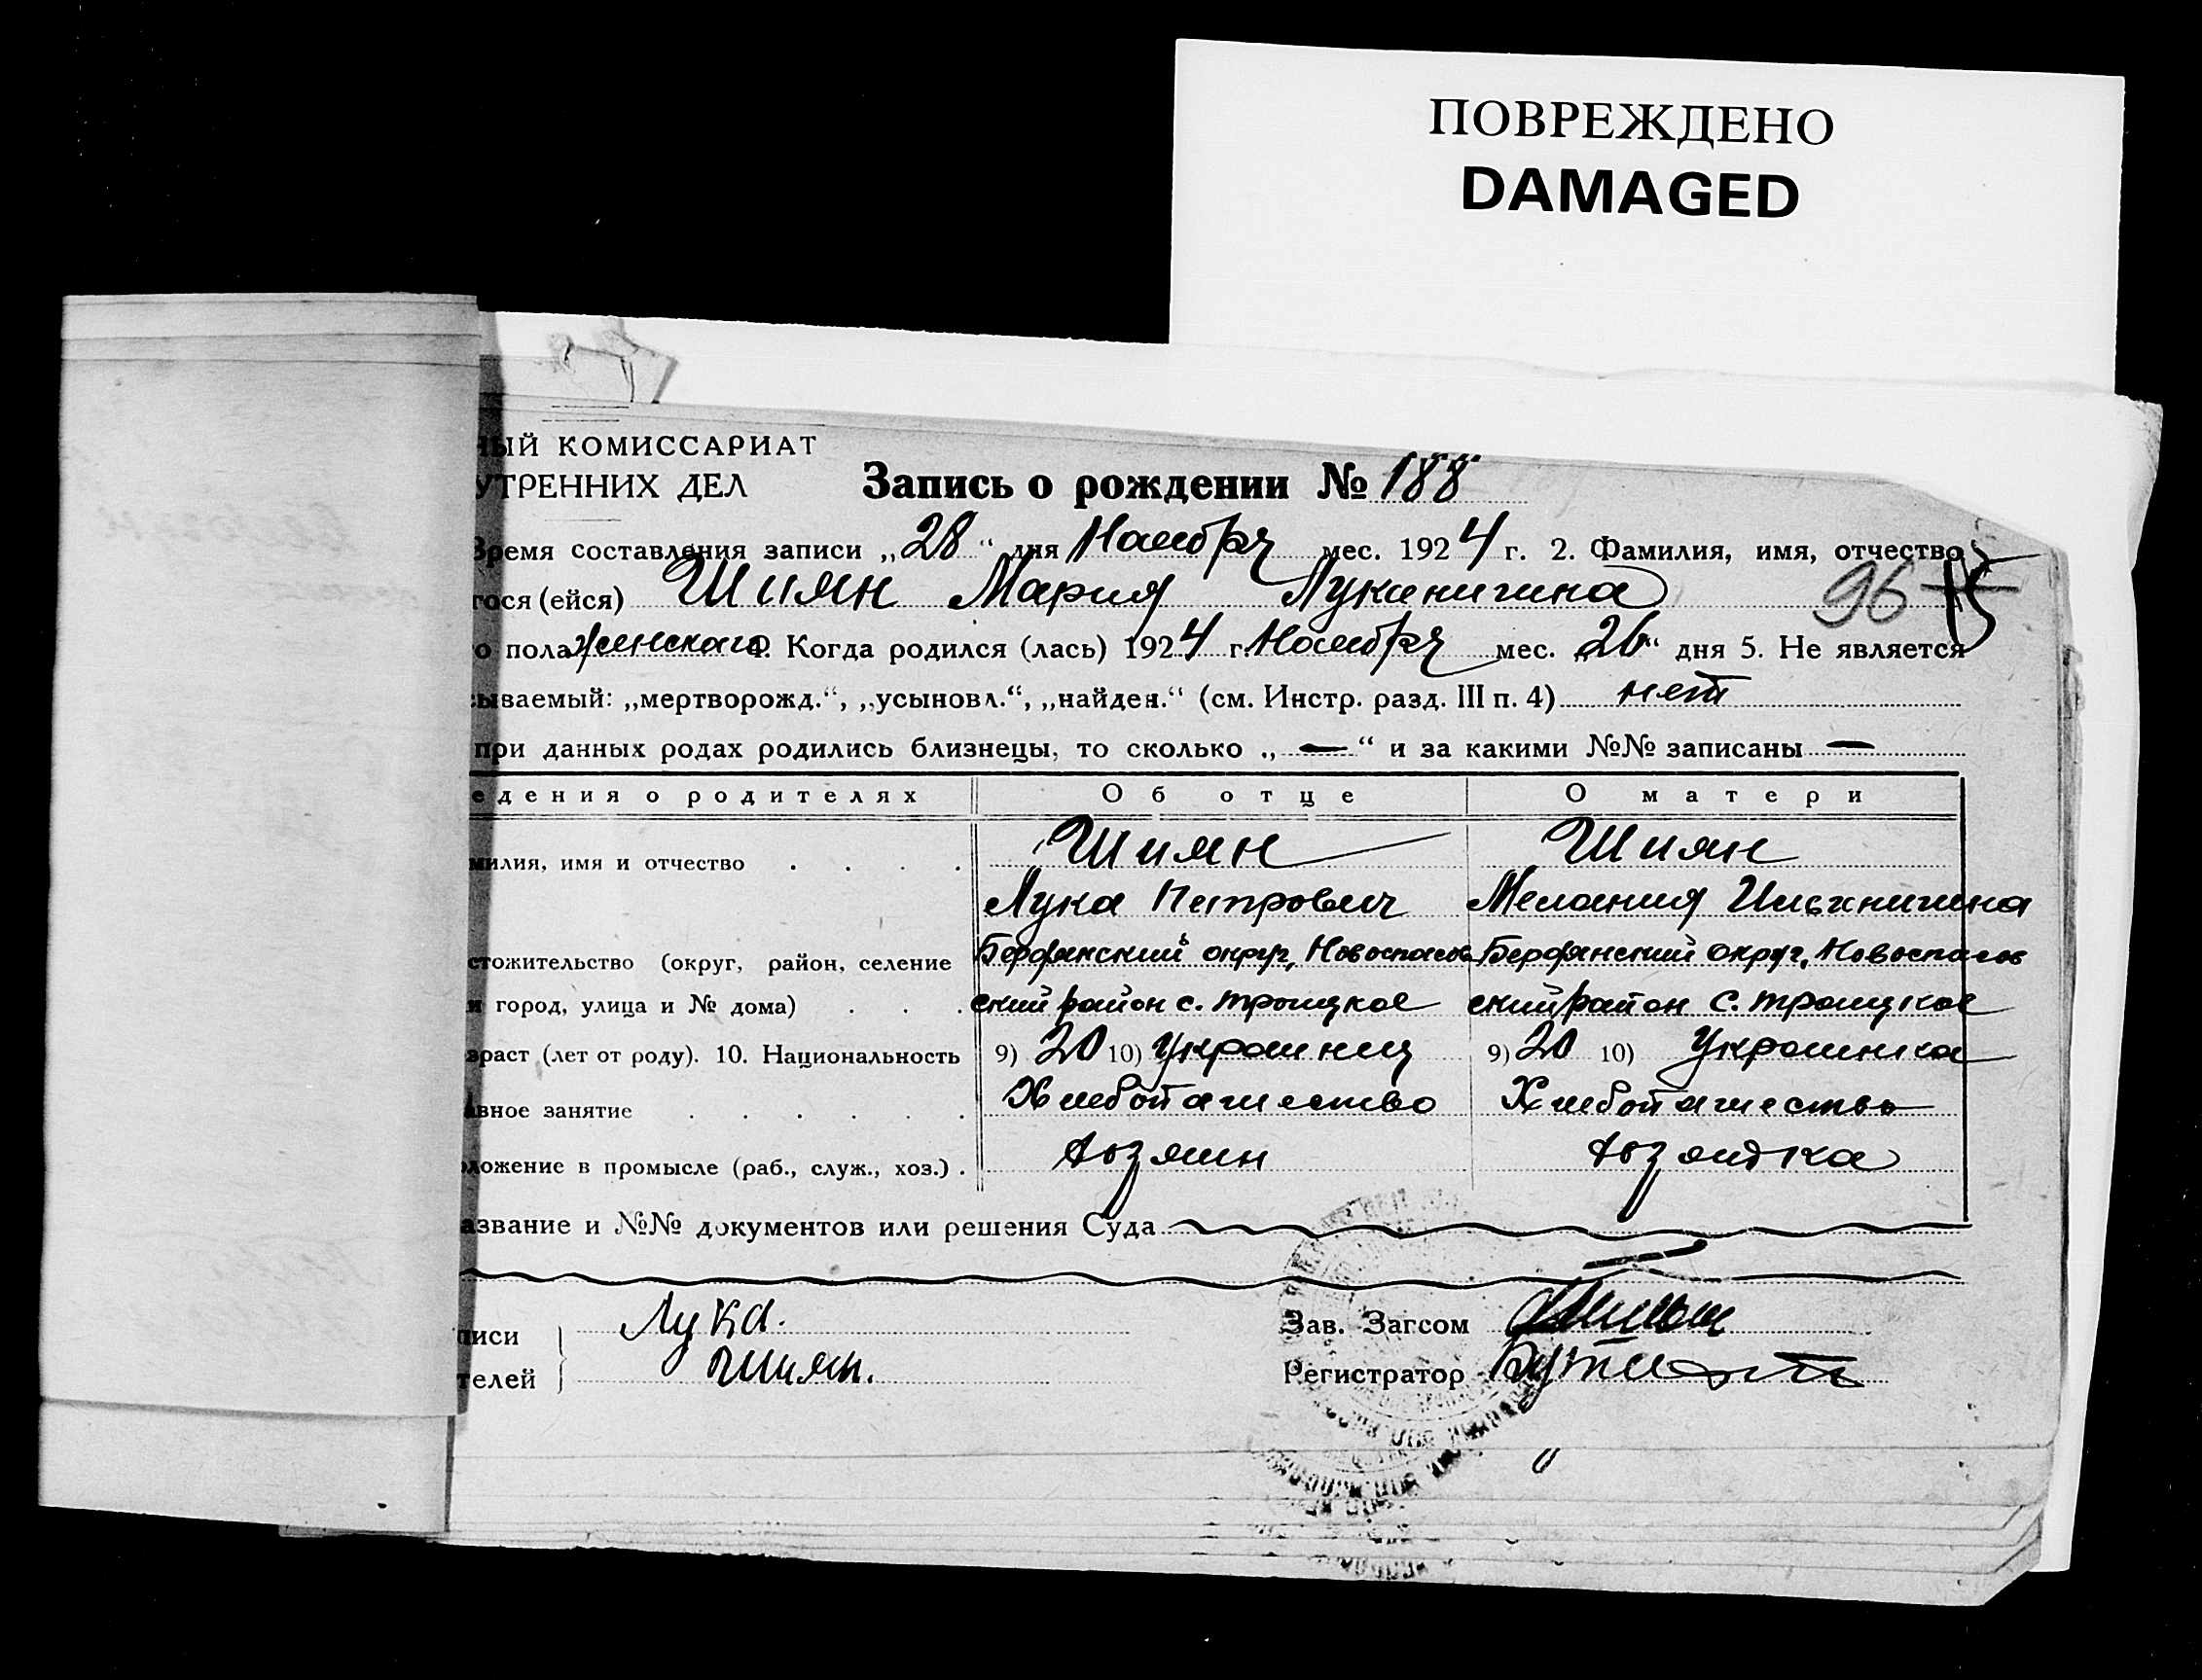 ПОВРЕЖДЕНО
DAMAGED
НЫЙ КОМИССАРИАТ
УТРЕННИХ ДЕЛ
Запись о рождении № 188
Время составления записи „28“ дня Ноября мес. 1924 г. 2. Фамилия, имя, отчество
гося (ейся) Шиян Мария Лукинична
96
о пола женского 4. Когда родился (лась) 1924 г. Ноября мес. „26“ дня 5. Не является
сываемый: „мертворожд.“, „усыновл.“, „найден.“ (см. Инстр. разд. III п. 4) нет
при данных родах родились близнецы, то сколько „—“ и за какими №№ записаны —
едения о родителях Об отце О матери
милия, имя и отчество . . . . Шиян Шиян
Лука Петрович Мелания Ильинична
стожительство (округ, район, селение Бердянский округ, Новоспасов Бердянский округ, Новоспасов
и город, улица и № дома) . . . ский район с. Троицкое ский район с. Троицкое
враст (лет от роду). 10. Национальность 9) 20 10) Украинец 9) 20 10) Украинка
авное занятие . . . . . . Хлебопашество Хлебопашество
оложение в промысле (раб., служ., хоз.) . Хозяин Хозяйка
азвание и №№ документов или решения Суда
писи Лука. Зав. Загсом
телей Шиян. Регистратор